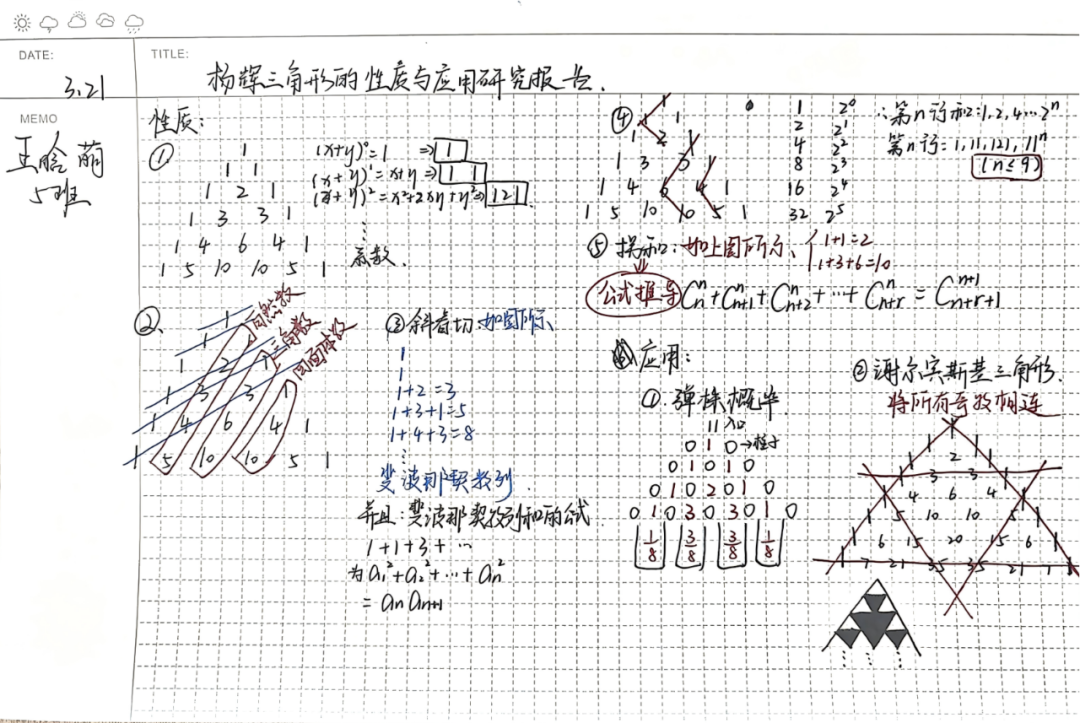 DATE:
3.21
TITLE:
杨辉三角形的性质与应用研究报告.
MEMO
王晗萌
5班
性质:
①
1
1 1
1 2 1
1 3 3 1
1 4 6 4 1
1 5 10 10 5 1
(x+y)⁰=1 ⇒ 1
(x+y)¹=x+y ⇒ 1 1
(x+y)²=x²+2xy+y² ⇒ 1 2 1
⋮
系数.
②
1
1 1
1 2 1
1 3 3 1
1 4 6 4 1
1 5 10 10 5 1
自然数
三角数
四面体数
③ 斜着切:如图所示
1
1
1+2=3
1+3+1=5
1+4+3=8
⋮
斐波那契数列.
并且:斐波那契数列和的公式
1+1+3+…
为a₁²+a₂²+…+aₙ²
=aₙaₙ₊₁
④
1
1 1
1 2 1
1 3 3 1
1 4 6 4 1
1 5 10 10 5 1
1 2⁰
2 2¹
4 2²
8 2³
16 2⁴
32 2⁵
∴第n行和:1,2,4…2ⁿ
第n行:1,11,121,11ⁿ
(n≤9)
⑤ 提和:如上图所示、{1+1=2
1+3+6=10
公式推导 Cₙⁿ+Cₙ₊₁ⁿ+Cₙ₊₂ⁿ+…+Cₙ₊ᵣⁿ=Cₙ₊ᵣ₊₁ⁿ⁺¹
应用:
①.弹珠概率
11入口
0 1 0→柱子
0 1 0 1 0
0 1 0 2 0 1 0
0 1 0 3 0 3 0 1 0
1/8 3/8 3/8 1/8
② 谢尔宾斯基三角形.
将所有奇数相连
1
1 1
1 2 1
1 3 3 1
1 4 6 4 1
1 5 10 10 5 1
1 6 15 20 15 6 1
1 7 21 35 35 21 7 1